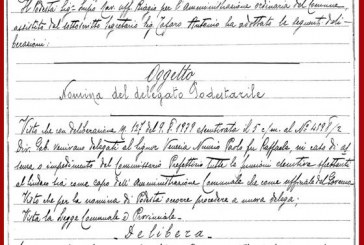 Il Podestà Sig. Lupis Cav. uff. Biagio per l'Amministrazione ordinaria del Comune,
assistito dal sottoscritto Segretario Sig. Antonio ha adottato le seguenti deli-
berazioni:
Oggetto
Nomina del delegato Podestarile
Vista che con deliberazione N. 127 del 9. 1939 esecutivata il 5 c/m. al N°
Div. Gab. venivano delegati al signor Nunzio Paolo fu Raffaele, in caso di as
senza o impedimento del Commissario Prefettizio tutte le funzioni esecutive spettanti
al Sindaco sia come capo dell'Amministrazione Comunale che come ufficiale del Governo
Visto che per la nomina di Podestà occorre procedere a nuova delega;
Vista la Legge Comunale e Provinciale.
Delibera